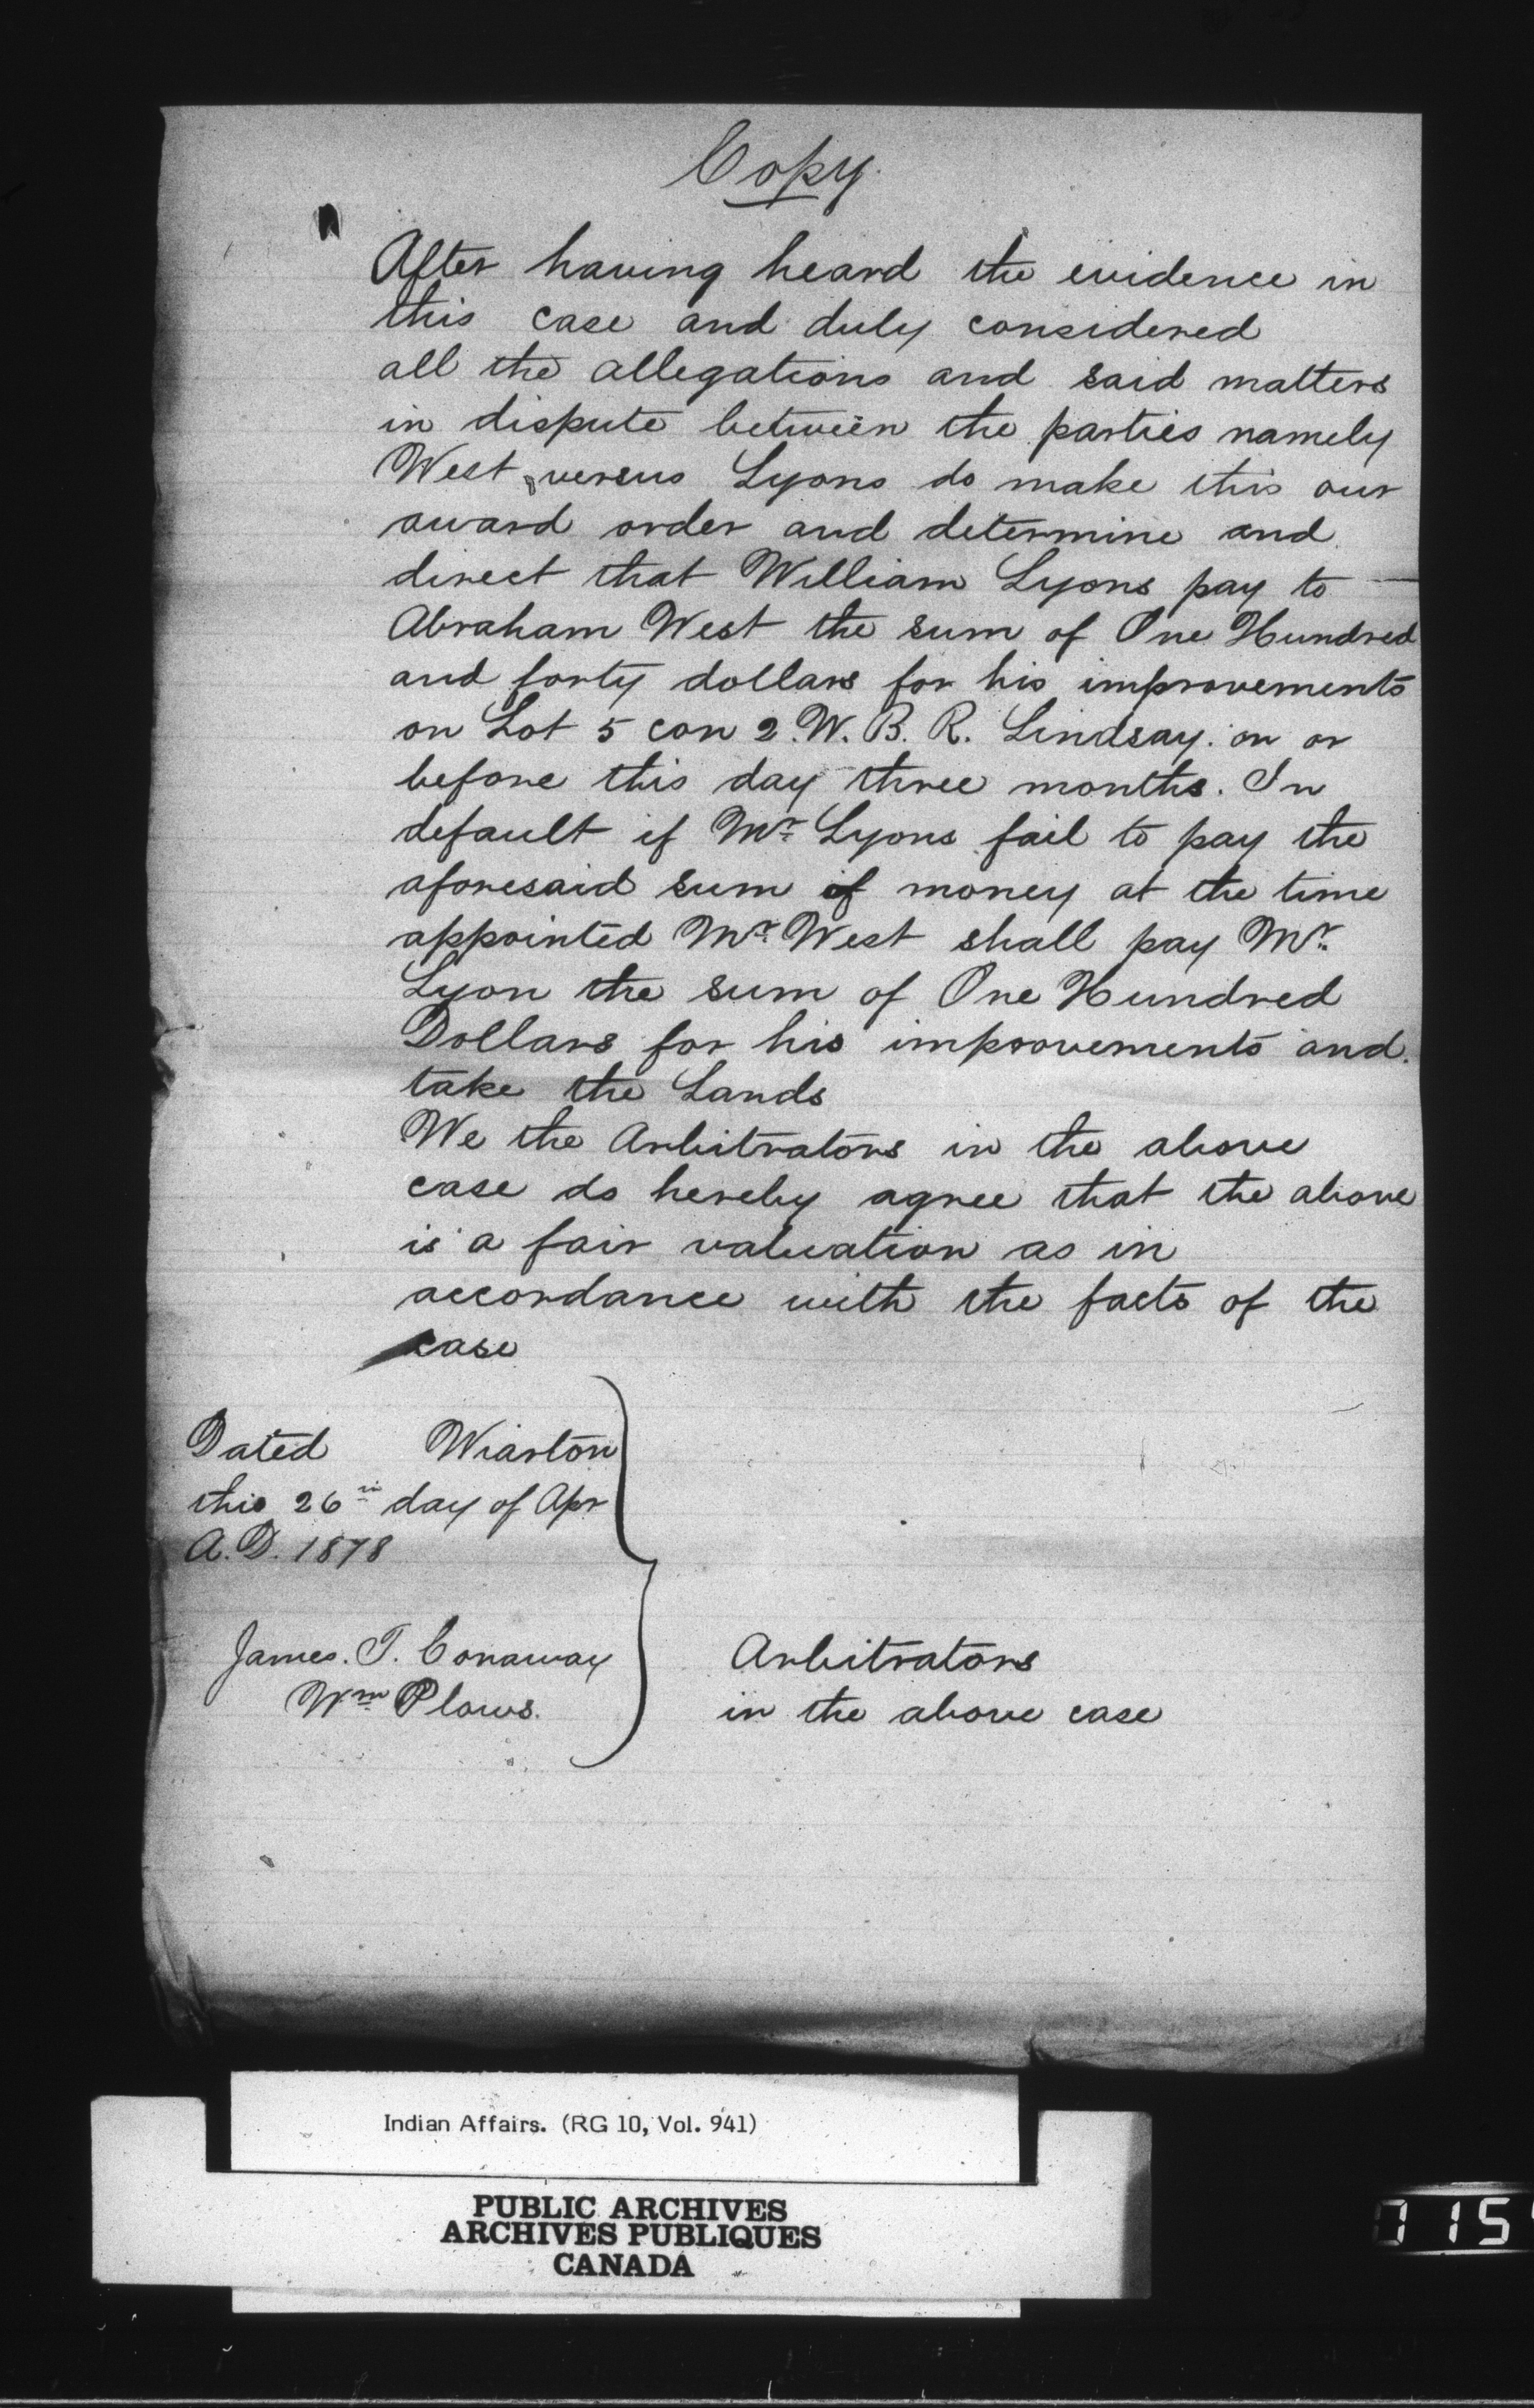 Copy.
After having heard the evidence in
this case and duly considered
all the allegations and said matters
in dispute between the parties namely
West versus Lyons do make this our
award order and determine and
direct that William Lyons pay to
Abraham West the sum of One Hundred
and forty dollars for his improvements
on Lot 5 con 2. W. B. R. Lindsay. on or
before this day three months. In
default if Mr. Lyons fail to pay the
aforesaid sum of money at the time
appointed Mr. West shall pay Mr.
Lyon the sum of One Hundred
Dollars for his improvements and.
take the Lands
We the Arbitrators in the above
case do hereby agree that the above
is a fair valuation as in
accordance with the facts of the
case
Dated Wiarton
this 26th day of Apr
A.D. 1878
James. T. Conaway
Wm Plows.
Arbitrators
in the above case
Indian Affairs. (RG 10, Vol. 941)
PUBLIC ARCHIVES
ARCHIVES PUBLIQUES
CANADA
115